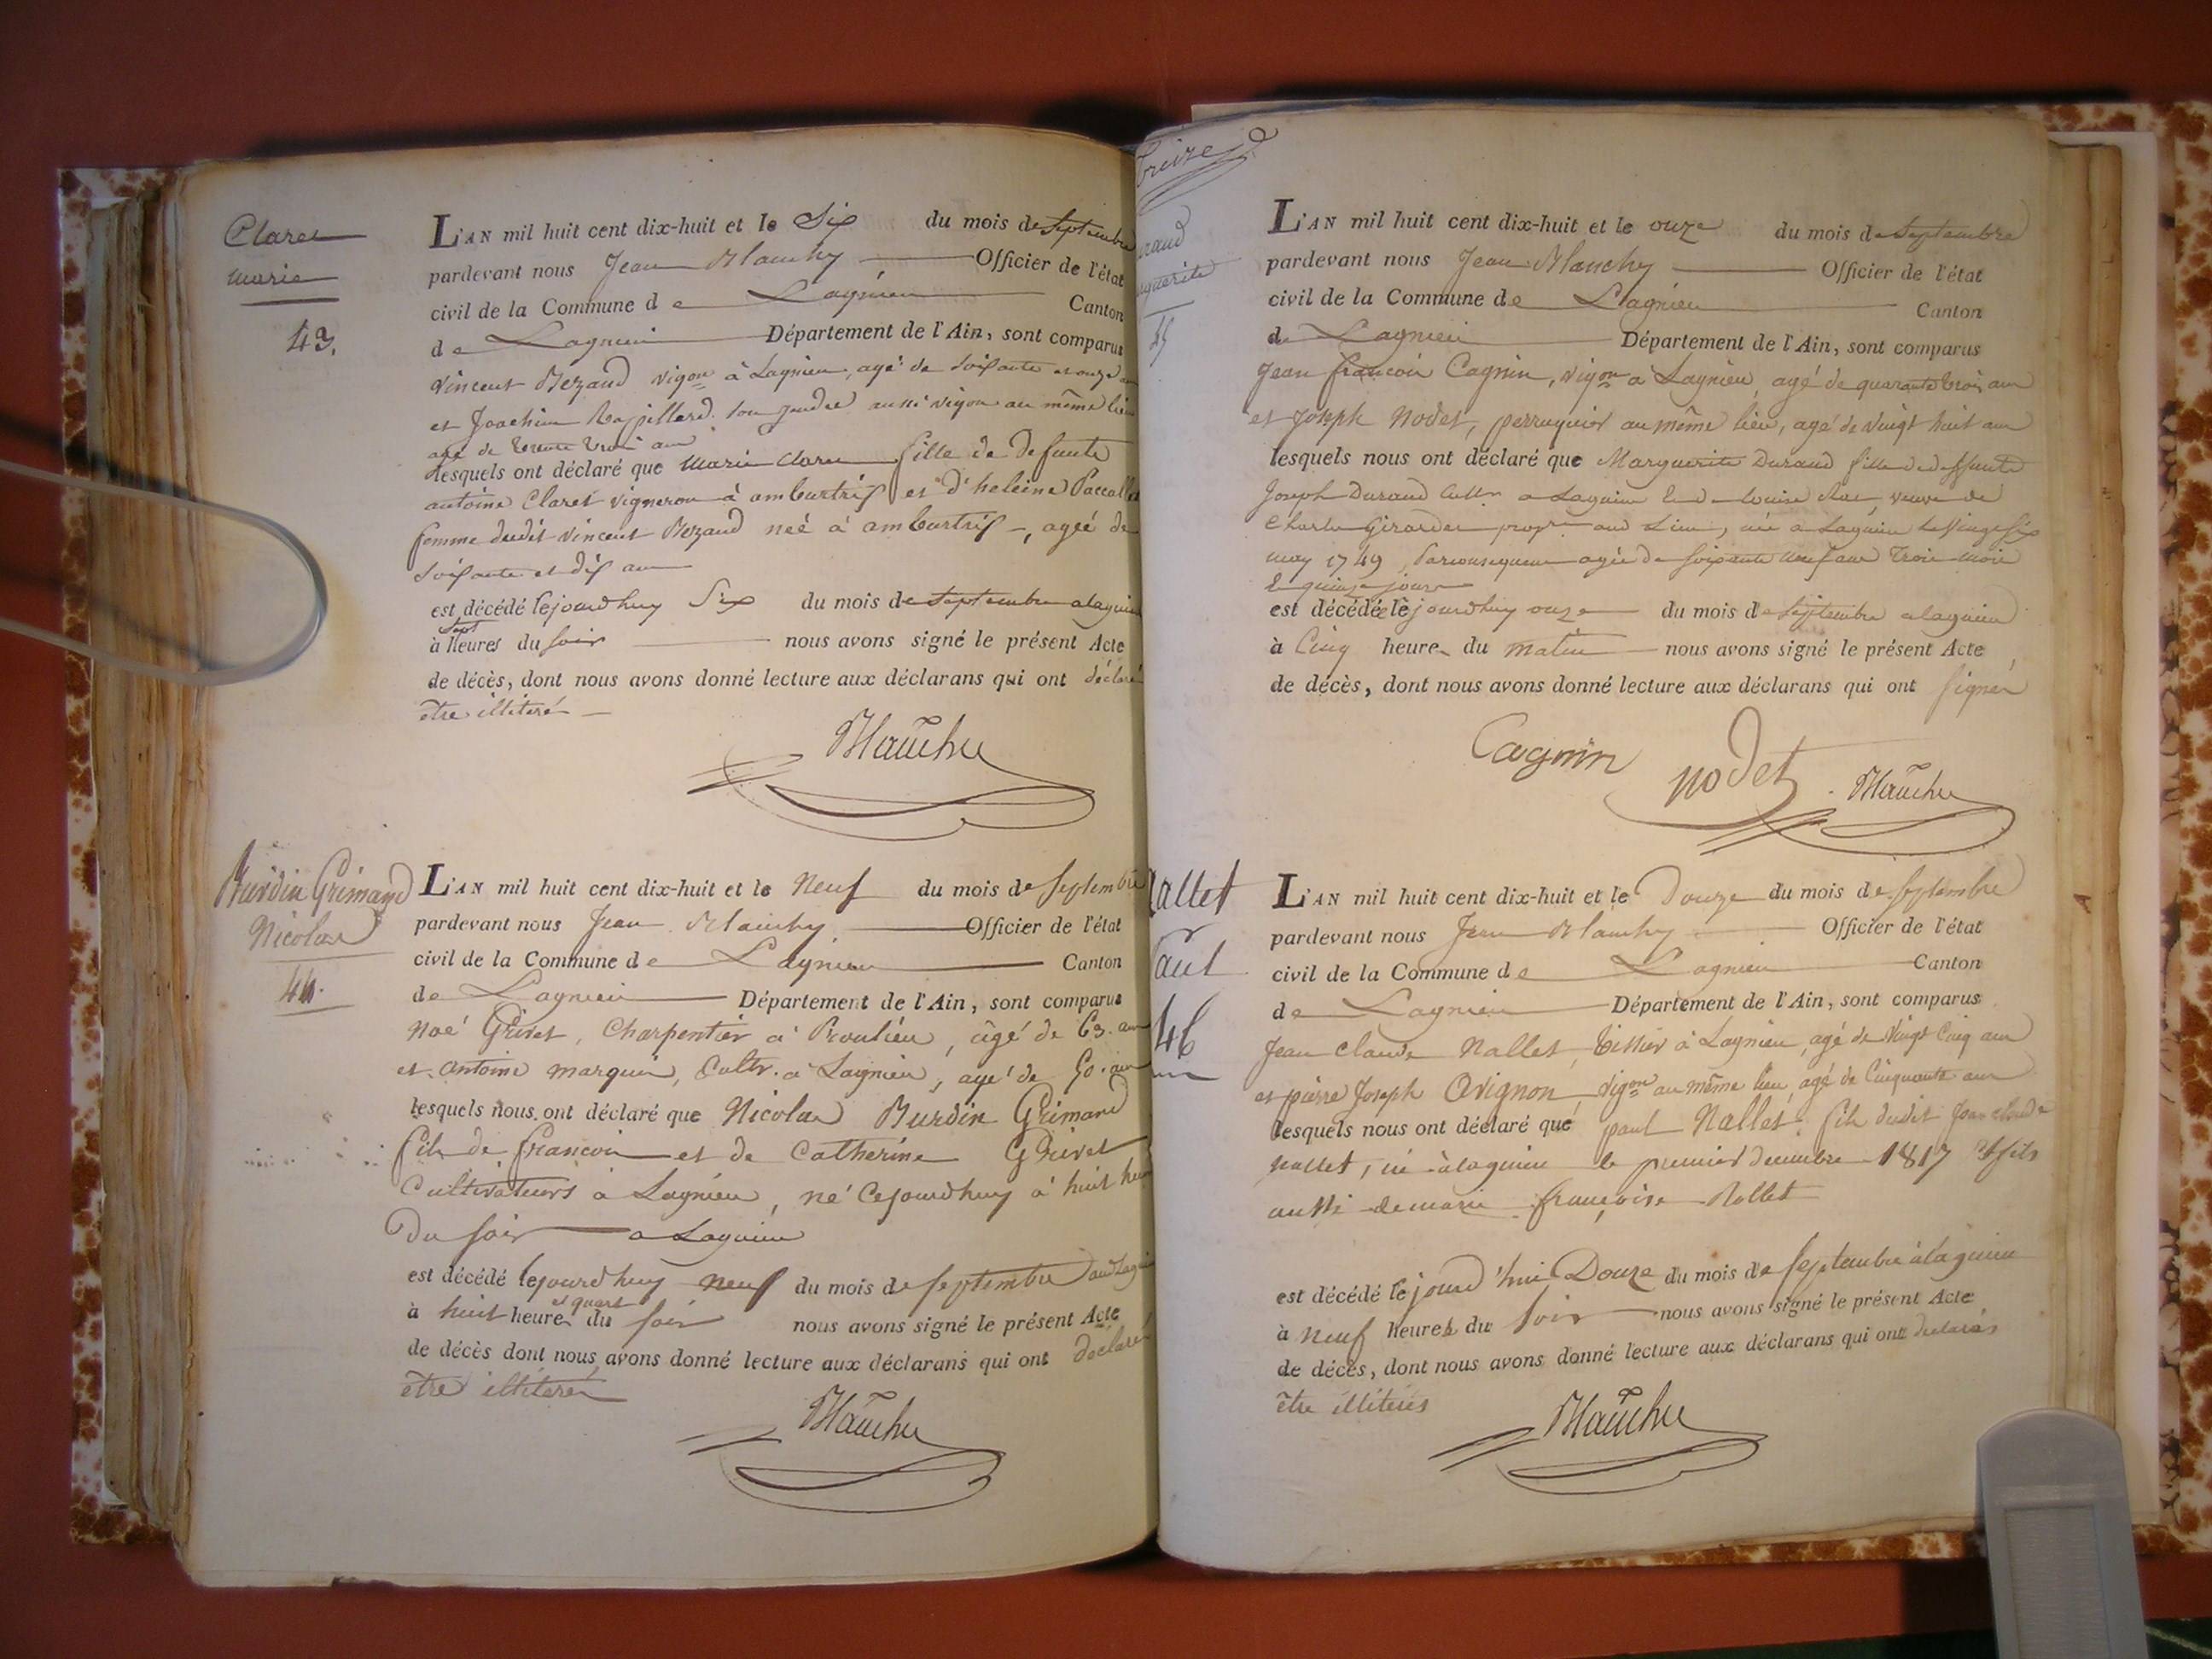 Claret
marie
43.
L'AN mil huit cent dix-huit et le Six du mois de Septembre
pardevant nous Jean Blanchy Officier de l'état
civil de la Commune de Lagnieu Canton
de Lagnieu Département de l'Ain, sont comparus
vincent Bezand vigon à Lagnieu, agé de soixante et onze
et Joachim Rapillard son gendre aussi vigon au même lieu
agé de trente trois ans
lesquels ont déclaré que marie claret fille de defunts
antoine Claret vigneron à ambutrix et d'heleine
femme dudit vincent Bezand neé à ambutrix, ageé de
soixante et dix ans
est décédé le jourdhuy Six du mois de Septembre a lagnieu
à sept heures du soir nous avons signé le présent Acte
de décès, dont nous avons donné lecture aux déclarans qui ont déclaré
être illiteré
Blanchy
Burdin Grimand
Nicolas
44.
L'AN mil huit cent dix-huit et le Neuf du mois de Septembre
pardevant nous Jean Blanchy Officier de l'état
civil de la Commune de Lagnieu Canton
de Lagnieu Département de l'Ain, sont comparus
Noé Grivet, Charpentier à Proulieu, âgé de 63. ans
et antoine marguin, Cultr. à Lagnieu, agé de 50. ans
lesquels nous ont déclaré que Nicolas Burdin Grimand
fils de francois et de Catherine Grivet
Cultivateurs à Lagnieu, né Cejourdhuy à huit heures
du soir a Lagnieu
est décédé le jourdhuy neuf du mois de septembre aud Lagnieu
à huit heures et quart du soir nous avons signé le présent Acte
de décès dont nous avons donné lecture aux déclarans qui ont déclaré
être illiterés
Blanchy
treize
45
L'AN mil huit cent dix-huit et le onze du mois de Septembre
pardevant nous Jean Blanchy Officier de l'état
civil de la Commune de Lagnieu Canton
de Lagnieu Département de l'Ain, sont comparus
Jean francois Cagnin, vigon à Lagnieu, agé de quarante trois ans
et Joseph Nodet, perruquier au même lieu, agé de vingt huit ans
lesquels nous ont déclaré que Marguerite Durand fille de deffunts
Joseph Durand Cultr a Lagnieu & de louise veuve de
Charles Girardet propre aud Lieu, née a Lagnieu le vingt six
may 1749, parconsequent agée de soixante neuf ans trois mois
& quinze jours
est décédée le jourdhuy onze du mois de Septembre a lagnieu
à Cinq heures du matin nous avons signé le présent Acte
de décès, dont nous avons donné lecture aux déclarans qui ont signés
Cagnin nodet Blanchy
46
L'AN mil huit cent dix-huit et le Douze du mois de Septembre
pardevant nous Jean Blanchy Officier de l'état
civil de la Commune de Lagnieu Canton
de Lagnieu Département de l'Ain, sont comparus
Jean claude Nallet, tissier à Lagnieu, agé de vingt Cinq ans
et pierre Joseph Avignon vigon au même lieu, agé de Cinquante ans
lesquels nous ont déclaré que paul Nallet fils dudit Jean claude
nallet, né à lagnieu le premier decembre 1817 & fils
aussi de marie françoise Rollet
est décédé le jourd'hui Douze du mois de septembre à lagnieu
à neuf heures du soir nous avons signé le présent Acte
de décès, dont nous avons donné lecture aux déclarans qui ont declarés
être illiterés
Blanchy